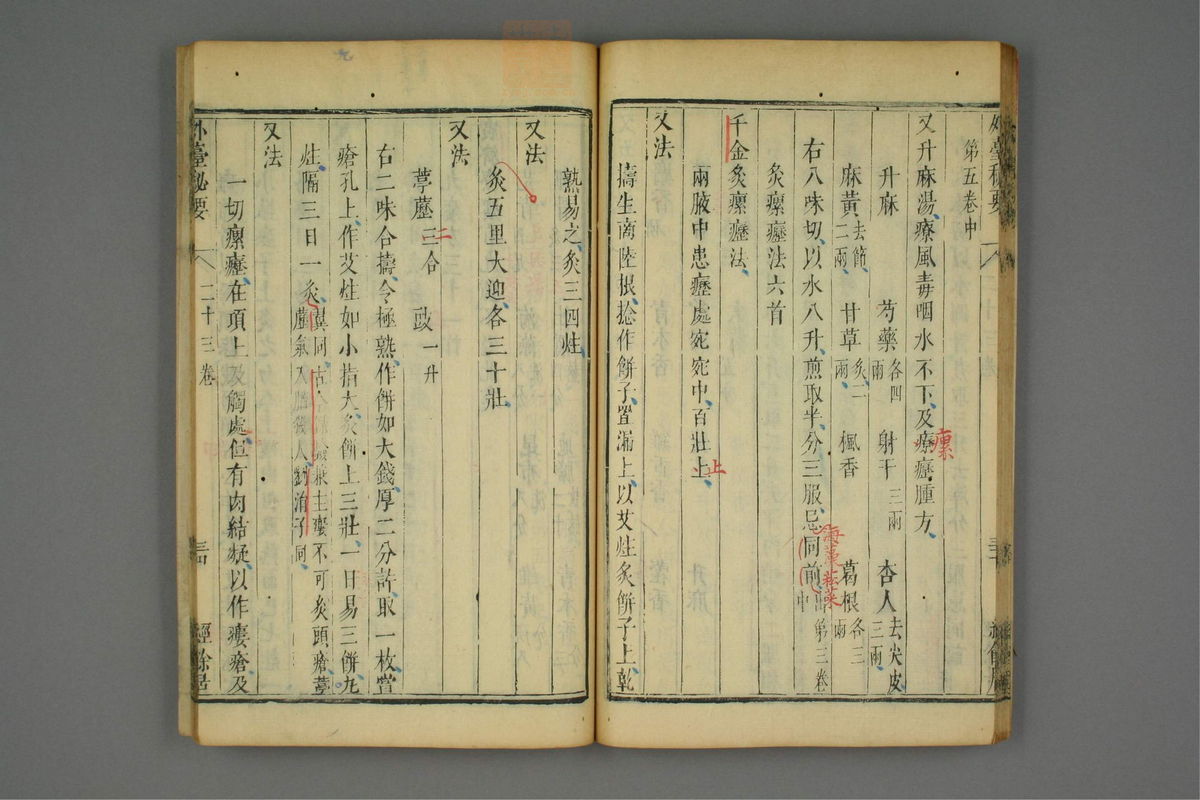 第五卷中
又升麻湯療風毒咽水不下及療瘰癧腫方
升麻 芍藥各四兩 射干三兩 杏人去尖皮三兩
麻黃去節二兩 甘草炙二兩 楓香 葛根各三兩
右八味切以水八升煎取半分三服忌同前出第三卷中
海藻菘菜
灸瘰癧法六首
千金灸瘰癧法
兩腋中患癧處宛宛中百壯上
止
又法
擣生商陸根捻作餅子置漏上以艾炷灸餅子上乾
熟易之灸三四炷
又法
灸五里大迎各三十壯
又法
葶藶三合 豉一升
二
右二味合擣令極熟作餅如大錢厚二分許取一枚當
瘡孔上作艾炷如小指大灸餅上三壯一日易三餅九
炷隔三日一灸崔同古今錄驗兼主瘻不可灸頭瘡葶藶氣入腦殺人劉涓子同
又法
一切瘰癧在項上及觸處但有肉結凝以作瘻瘡及
外臺秘要 二十三卷 三十四 經餘居